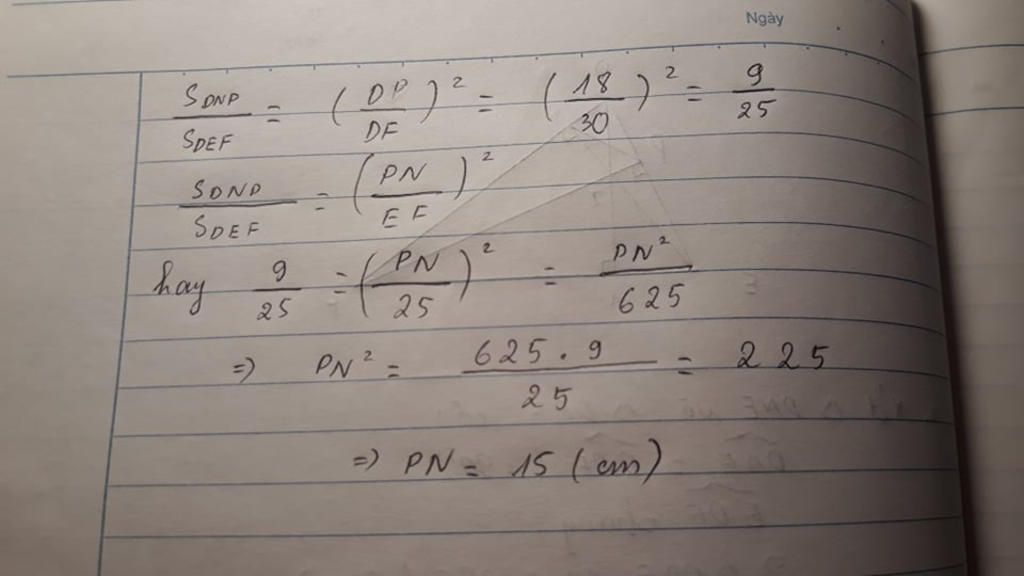 Ngày
S_DNP / S_DEF = (DP / DF)² = (18 / 30)² = 9 / 25
S_DND / S_DEF = (PN / EF)²
hay 9 / 25 = (PN / 25)² = PN² / 625
=> PN² = 625 . 9 / 25 = 225
=> PN = 15 (cm)